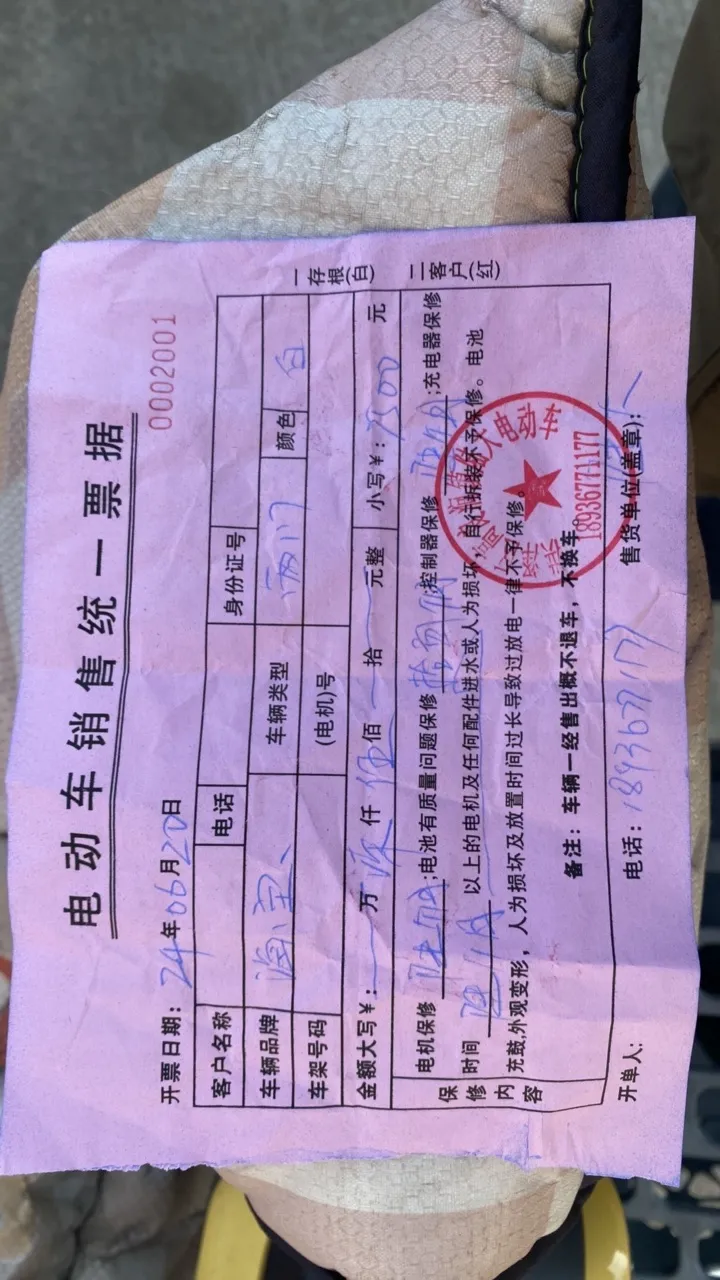 0002001
电动车销售统一票据
开票日期：24年06月20日
一存根(白) 二客户(红)
客户名称 电话 身份证号
车辆品牌 车辆类型 颜色 白
车架号码 (电机)号
金额大写￥： 万 仟 伍佰 拾 元整 小写￥：7500 元
保修内容
电机保修 ;电池有质量问题保修 ;控制器保修 ;充电器保修
时间 以上的电机及任何配件进水或人为损坏，自行拆装不予保修。电池
充鼓,外观变形，人为损坏及放置时间过长导致过放电一律不予保修。
备注：车辆一经售出概不退车，不换车。
开单人： 电话：18936771177 售货单位(盖章)：
电动车
18936771177